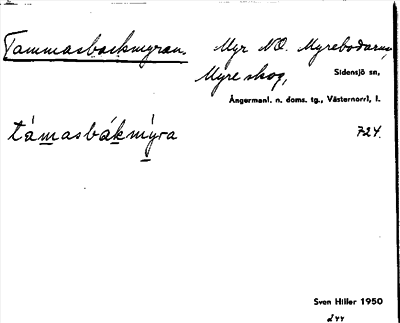 Tammasbackmyran Myr NO. Myrebodarna,
Myre skog, Sidensjö sn,
Ångermanl. n. doms. tg., Västernorrl. l.
támasbákmýra 724.
Sven Hiller 1950